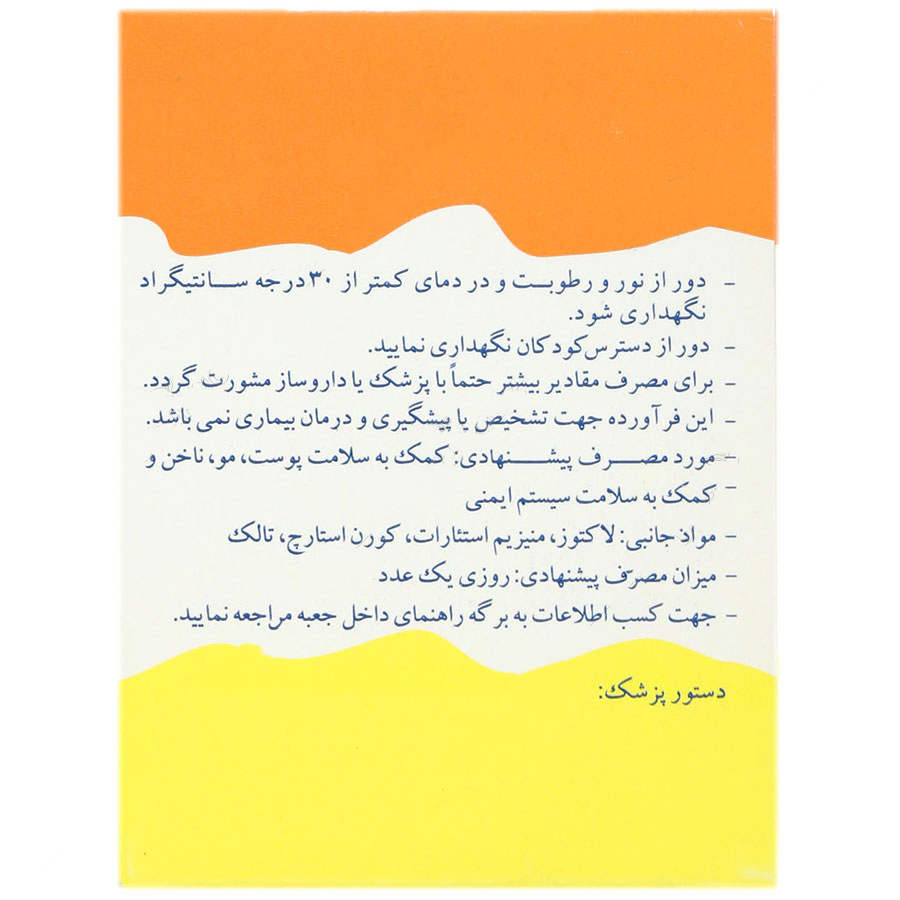 - دور از نور و رطوبت و در دمای کمتر از ۳۰ درجه سانتیگراد
نگهداری شود.
- دور از دسترس کودکان نگهداری نمایید.
- برای مصرف مقادیر بیشتر حتماً با پزشک یا داروساز مشورت گردد.
- این فرآورده جهت تشخیص یا پیشگیری و درمان بیماری نمی باشد.
- مورد مصرف پیشنهادی: کمک به سلامت پوست، مو، ناخن و
- کمک به سلامت سیستم ایمنی
- مواد جانبی: لاکتوز، منیزیم استئارات، کورن استارچ، تالک
- میزان مصرف پیشنهادی: روزی یک عدد
- جهت کسب اطلاعات به برگه راهنمای داخل جعبه مراجعه نمایید.
دستور پزشک: